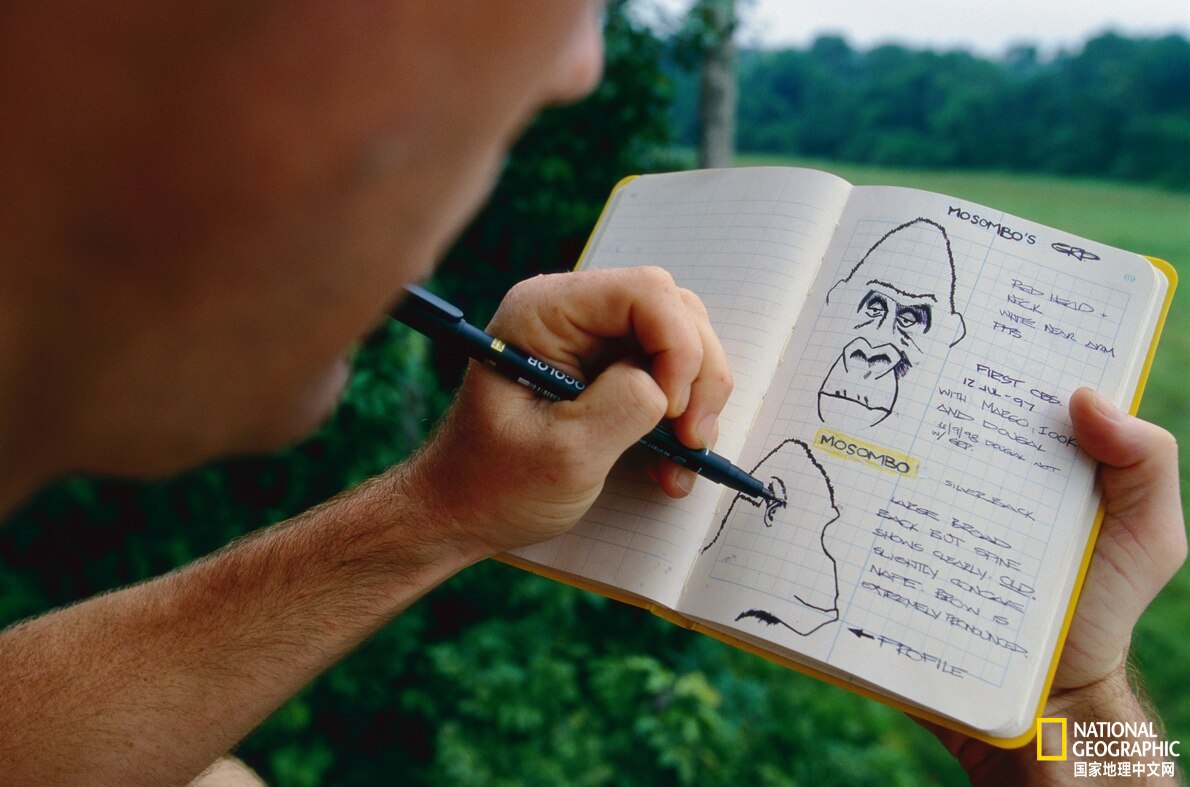 MOSOMBO'S GRP
RED HEAD +
NECK
WHITE NEAR ARM
PITS.
FIRST OBS.
12 JUL-97
WITH MARGO, IOOK
AND DOUGAL
W/ GRP.
MOSOMBO
SILVERBACK
LARGE BROAD
BACK BUT SPINE
SHOWS CLEARLY. OLD.
SLIGHTLY CONCAVE
NAPE. BROW IS
EXTREMELY PRONOUNCED.
← PROFILE
OCOLOR
69
NATIONAL
GEOGRAPHIC
国家地理中文网